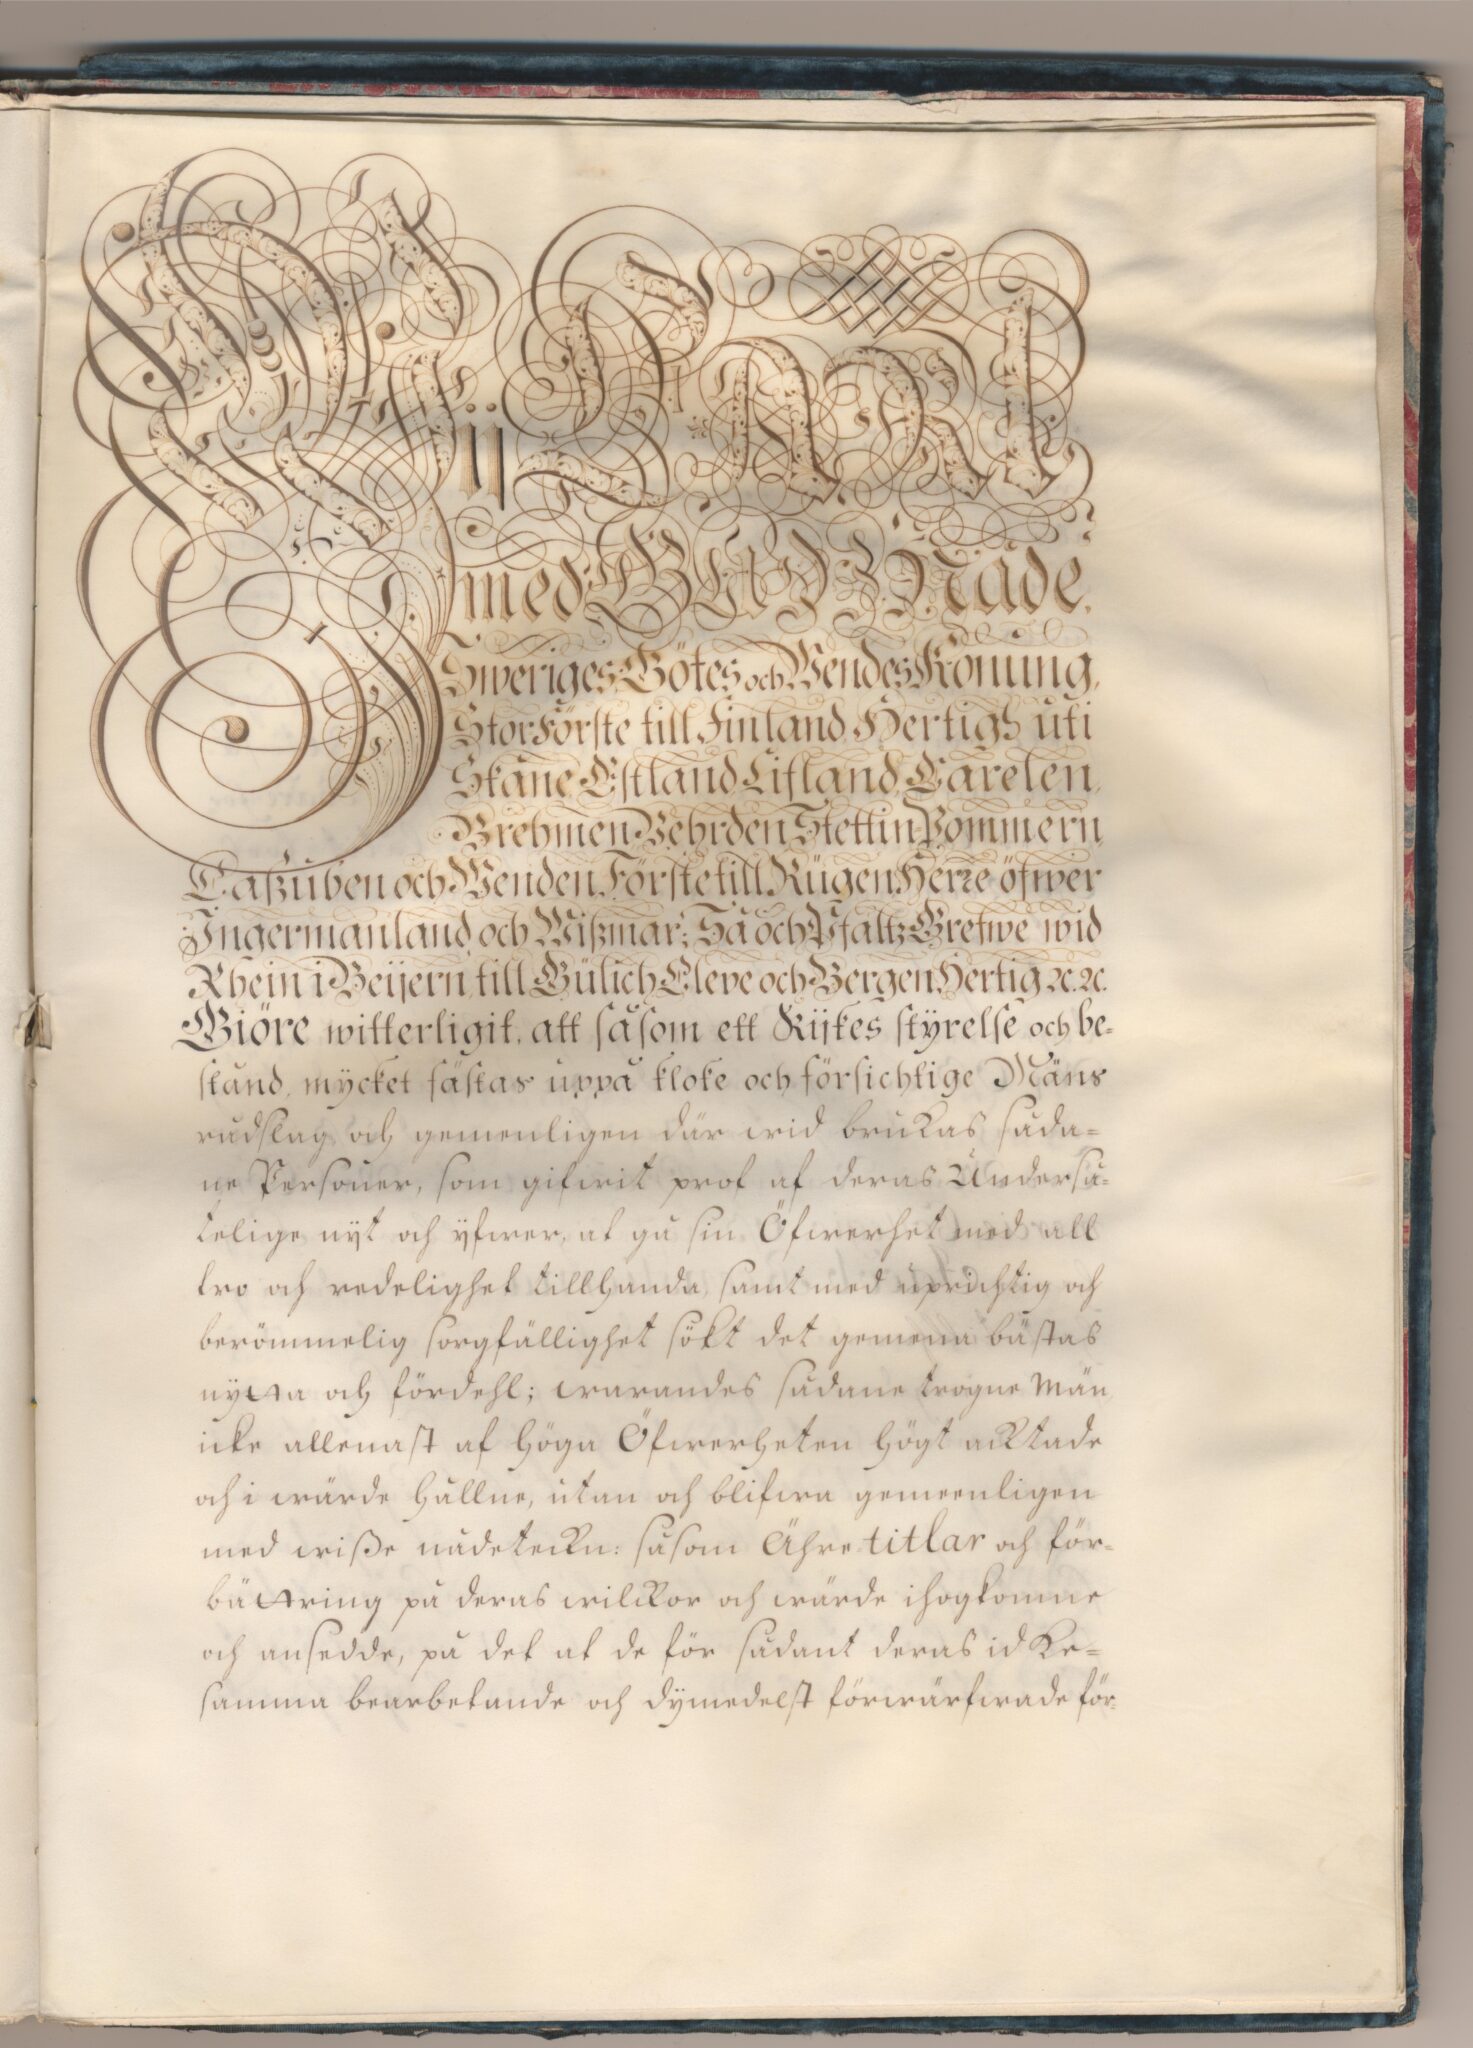 Wij CARL
med GUDZ Nåde,
Sweriges, Götes och Wendes Konung,
StorFörste till Finland, Hertigh uti
Skåne, Estland, Lifland, Carelen,
Brehmen, Vehrden, Stettin, Pommern,
Caßuben och Wenden, Förste till Rügen, Herre öfwer
Ingermanland och Wißmar; Så och Pfaltz Grefwe wid
Rhein i Beijern, till Gülich, Cleve och Bergen Hertig ꝛc. ꝛc.
Giöre witterligit, att såsom ett Rijkes styrelse och be-
stånd, mycket fästas uppå kloke och försichtige Mäns
rådslag, och gemenligen där wid brukas såda-
ne Personer, som gifwit prof af deras Underså-
telige nyt och yfwer, at gå sin Öfwerhet med all
tro och redelighet tillhanda, samt med uprichtig och
berömmelig sorgfällighet sökt det gemena bästas
nytta och fördehl; warandes sådane trogne Män
icke allenast af Höga Öfwerheten högt acktade
och i wärde hållne, utan och blifwa gemeenligen
med wiße nådeteckn: såsom Ähre titlar och för-
bättring på deras wilckor och wärde ihogkomne
och ansedde, på det at de för sådant deras idke-
samma bearbetande och dymedelst förwärfwade för-